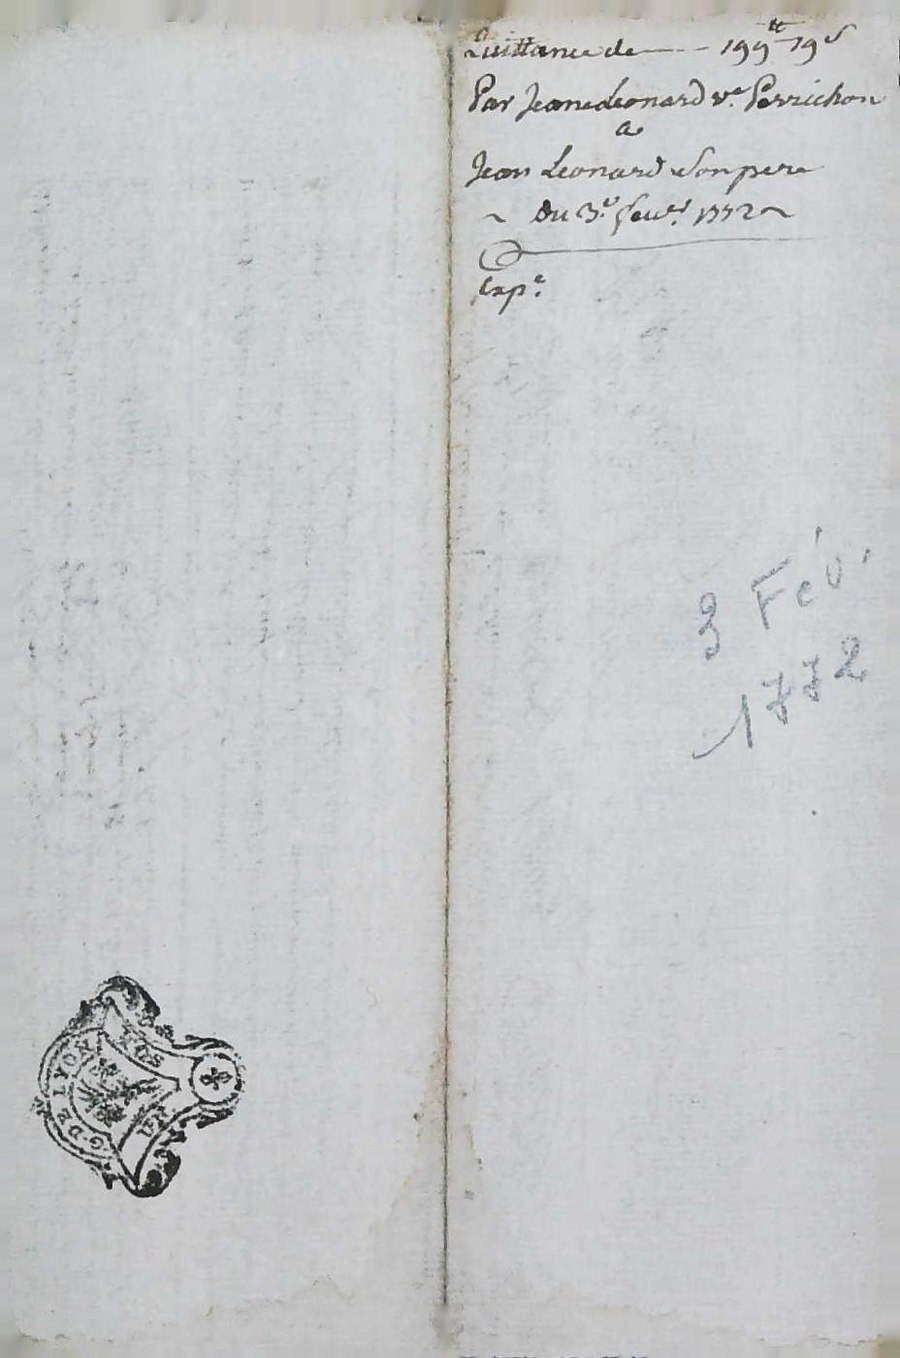 Quittance de — 199ᵗᵗ 19ˢ
Par Jeane Leonard vᵉ Perrichon
a
Jean Leonard son pere
~ du 3ᵉ fevʳ 1772 ~
Expᵉ
3 Fév.
1772
G. DE LYON